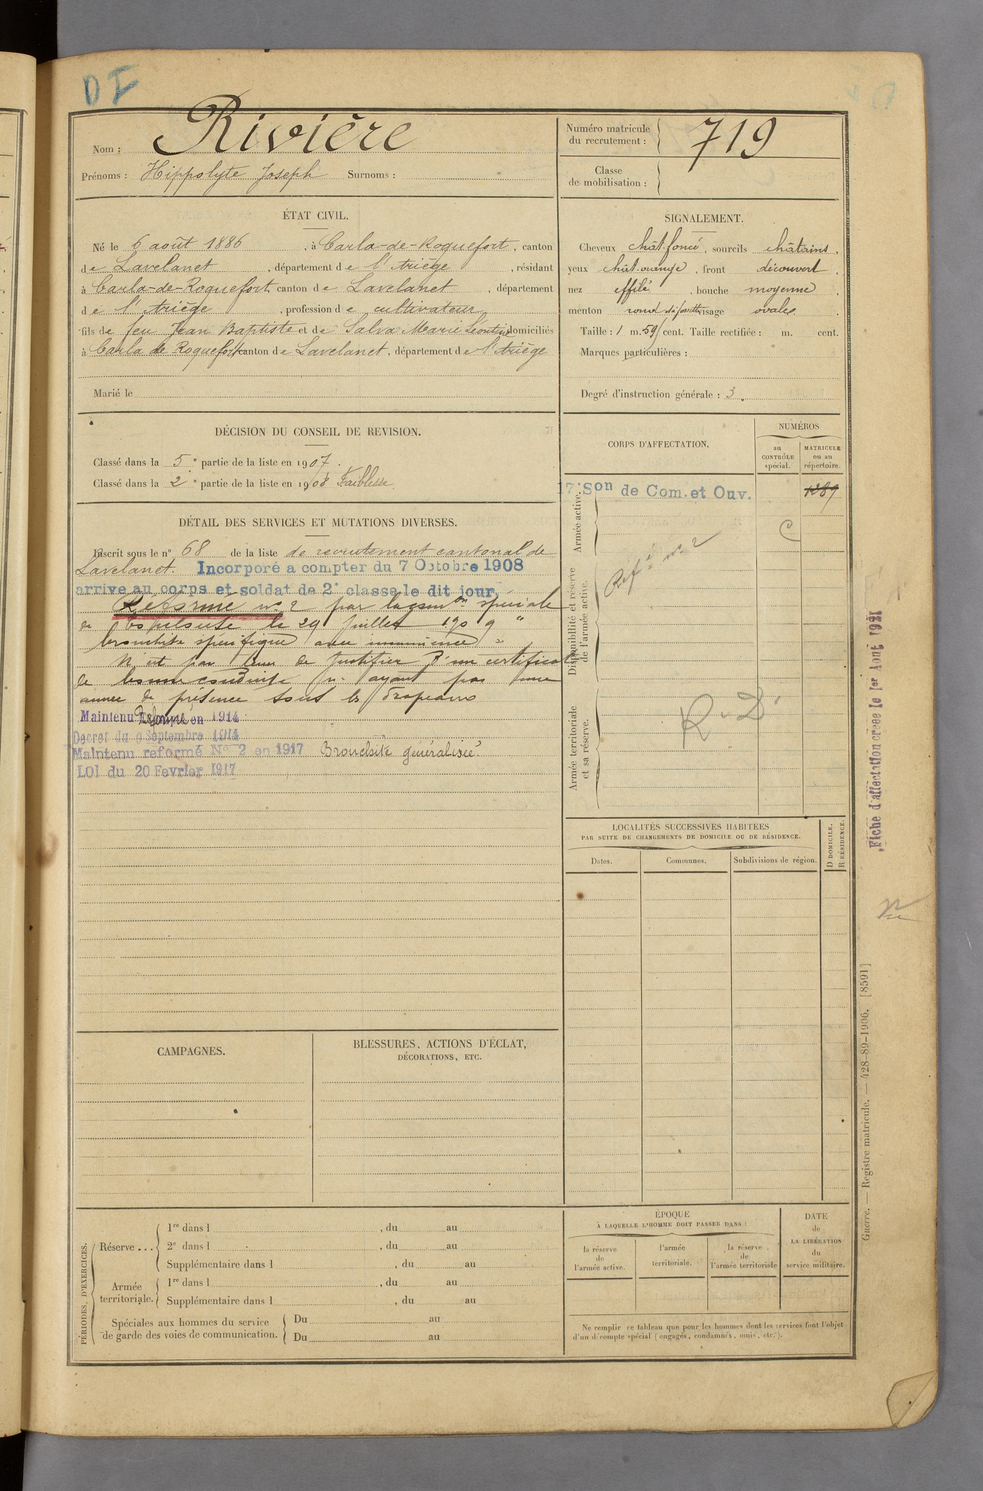 DI
Nom : Rivière
Prénoms : Hippolyte Joseph Surnoms :
Numéro matricule du recrutement : 719
Classe de mobilisation :
ÉTAT CIVIL.
Né le 6 août 1886, à Carla-de-Roquefort, canton
de Lavelanet, département de l'Ariège, résidant
à Carla-de-Roquefort, canton de Lavelanet, département
de l'Ariège, profession de cultivateur
fils de feu Jean Baptiste et de Salva Marie Léontine domiciliés
à Carla de Roquefort canton de Lavelanet, département de l'Ariège
Marié le
SIGNALEMENT.
Cheveux chât. foncé, sourcils châtains,
yeux chât. orangé, front découvert,
nez effilé, bouche moyenne,
menton rond visage ovale.
Taille : 1 m. 59 cent. Taille rectifiée : m. cent.
Marques particulières :
Degré d'instruction générale : 3.
DÉCISION DU CONSEIL DE REVISION.
Classé dans la 5e partie de la liste en 1907.
Classé dans la 2e partie de la liste en 1908 Faiblesse
DÉTAIL DES SERVICES ET MUTATIONS DIVERSES.
Inscrit sous le n° 68 de la liste de recrutement cantonal de
Lavelanet. Incorporé a compter du 7 Octobre 1908
arrive au corps et soldat de 2e classe le dit jour.
Réformé n° 2 par la comon spéciale
de le 29 Juillet 1909 "
bronchite spécifique avec "
N'est pas tenu de justifier d'un certificat
de bonne conduite n'ayant pas une
année de présence sous les drapeaux
Maintenu Réformé en 1914
Decret du 9 Septembre 1914
Maintenu reformé No 2 en 1917 Bronchite généralisée
LOI du 20 Fevrier 1917
CORPS D'AFFECTATION.
NUMÉROS
au CONTRÔLE spécial.
MATRICULE ou au répertoire.
Armée active.
17e Son de Com. et Ouv.
1389
C
Disponibilité et réserve de l'armée active.
Réfé n° 2
Armée territoriale et sa réserve.
R. D.
LOCALITÉS SUCCESSIVES HABITÉES
PAR SUITE DE CHANGEMENTS DE DOMICILE OU DE RÉSIDENCE.
Dates.
Communes.
Subdivisions de région.
D DOMICILE.
R RÉSIDENCE.
CAMPAGNES.
BLESSURES, ACTIONS D'ÉCLAT,
DÉCORATIONS, ETC.
PÉRIODES D'EXERCICES.
Réserve ...
1re dans l , du au
2e dans l , du au
Supplémentaire dans l , du au
Armée territoriale.
1re dans l , du au
Supplémentaire dans l , du au
Spéciales aux hommes du service
de garde des voies de communication.
Du au
Du au
ÉPOQUE
À LAQUELLE L'HOMME DOIT PASSER DANS :
la réserve de l'armée active.
l'armée territoriale.
la réserve de l'armée territoriale
DATE de LA LIBÉRATION du service militaire.
Ne remplir ce tableau que pour les hommes dont les services font l'objet
d'un décompte spécial (engagés, condamnés, omis, etc.).
Fiche d'affectation créée le 1er Aout 1921
Guerre. — Registre matricule. — 428-89-1906. [8591]